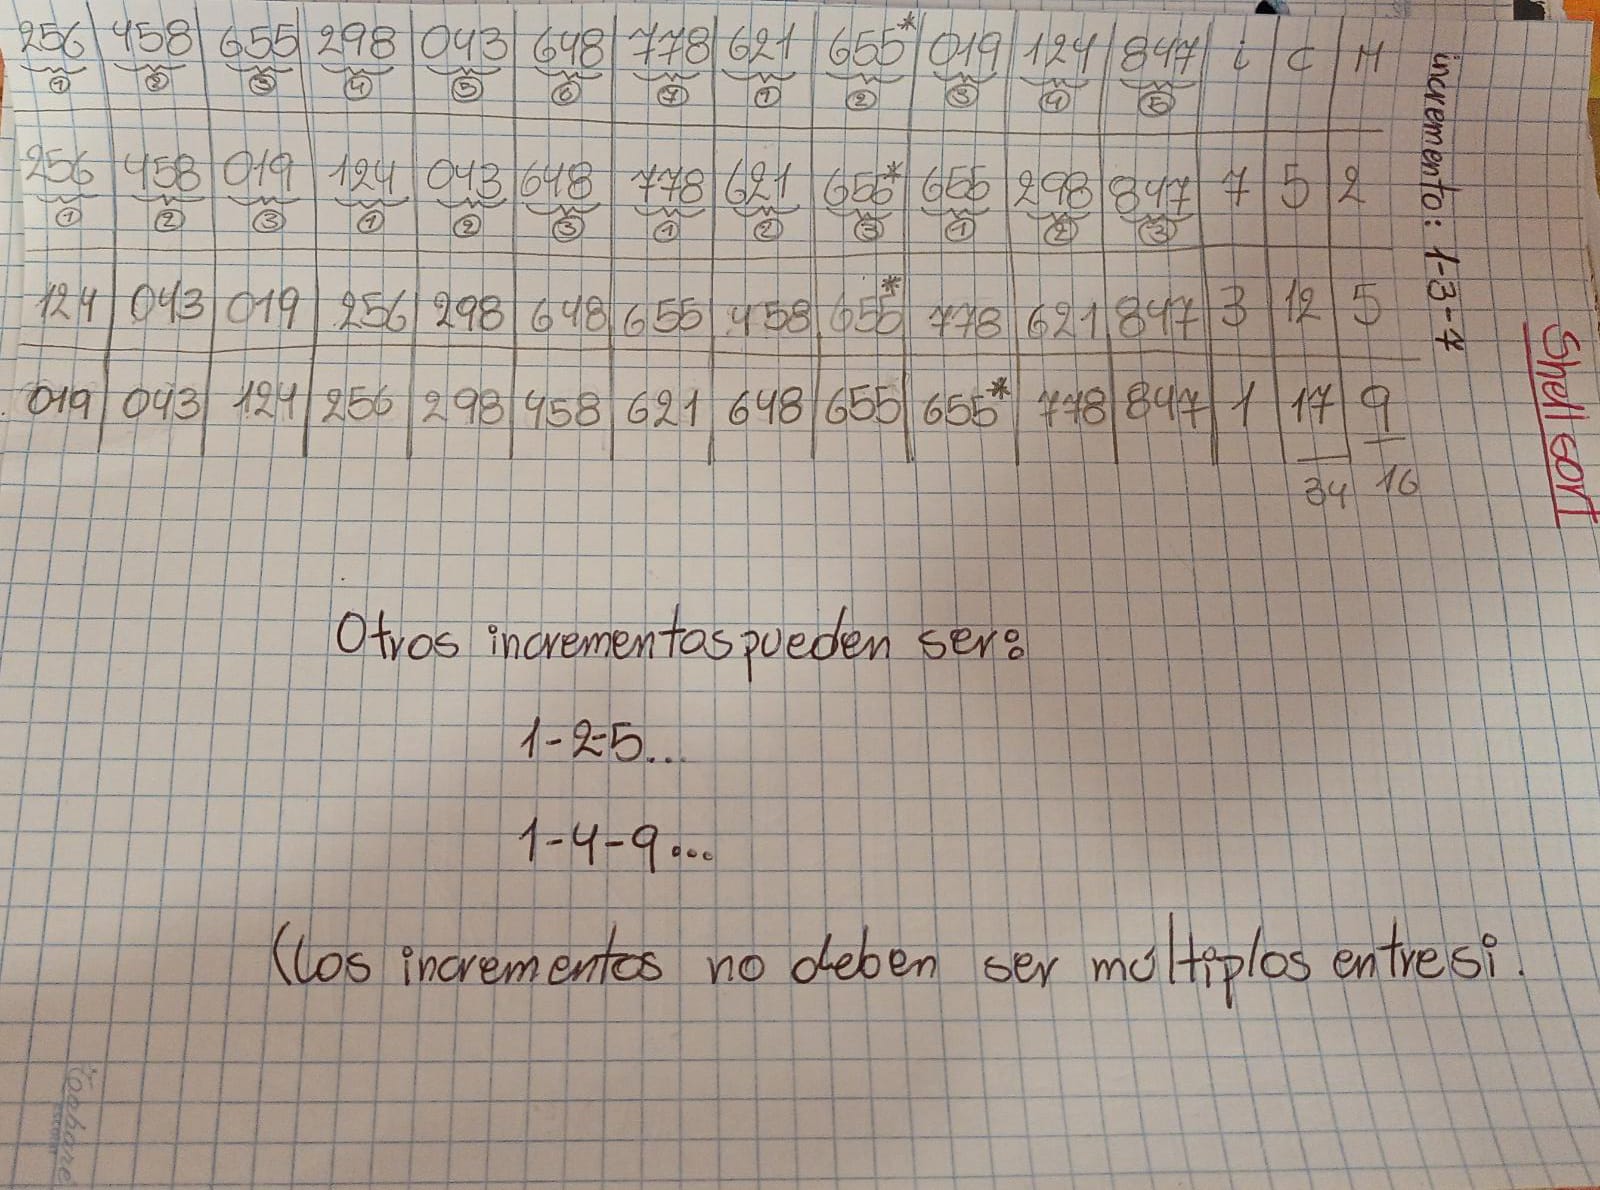 256 458 655 298 043 648 778 621 655* 019 124 847 i C M
① ② ③ ④ ⑤ ⑥ ⑦ ① ② ③ ④ ⑤
256 458 019 124 043 648 778 621 655* 655 298 847 7 5 2
① ② ③ ① ② ③ ① ② ③ ① ② ③
124 043 019 256 298 648 655 458 655* 778 621 847 3 12 5
019 043 124 256 298 458 621 648 655 655* 778 847 1 17 9
34 16
incremento: 1-3-7
Shell sort
Otros incrementos pueden ser:
1-2-5...
1-4-9...
(los incrementos no deben ser múltiplos entre si.